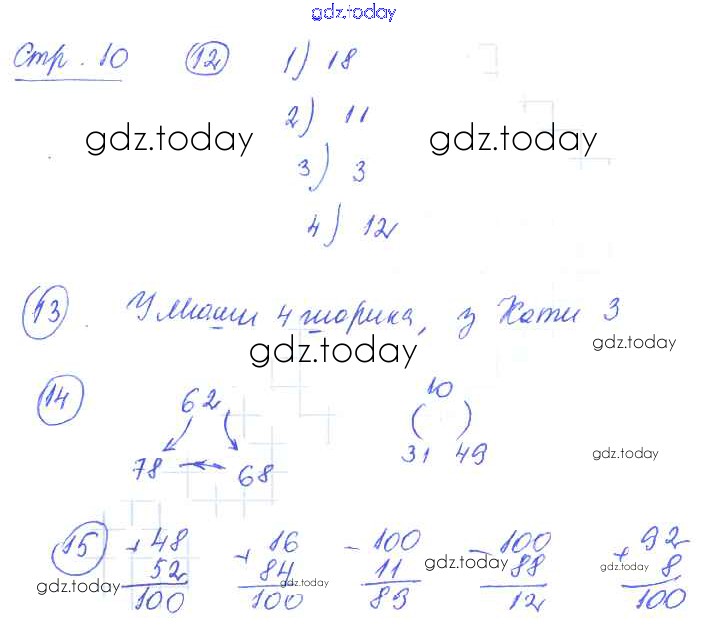 gdz.today
Стр. 10 12 1) 18
2) 11
gdz.today gdz.today
3) 3
4) 12
13 У Миши 4 шарика, у Кати 3
gdz.today
gdz.today
14 62 10
78 68 31 49
gdz.today
15 + 48 + 16 - 100 - 100 + 92
52 84 11 88 8
100 100 89 12 100
gdz.today gdz.today gdz.today gdz.today gdz.today